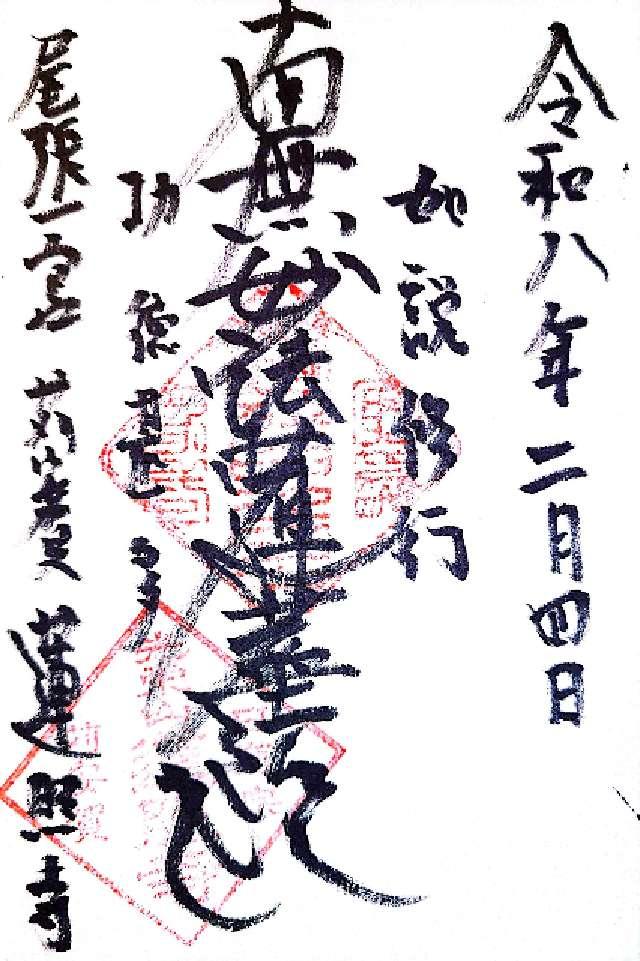 令和八年二月四日
如説修行
南無妙法蓮華経
功徳甚多
尾張一宮 苅安賀 蓮照寺